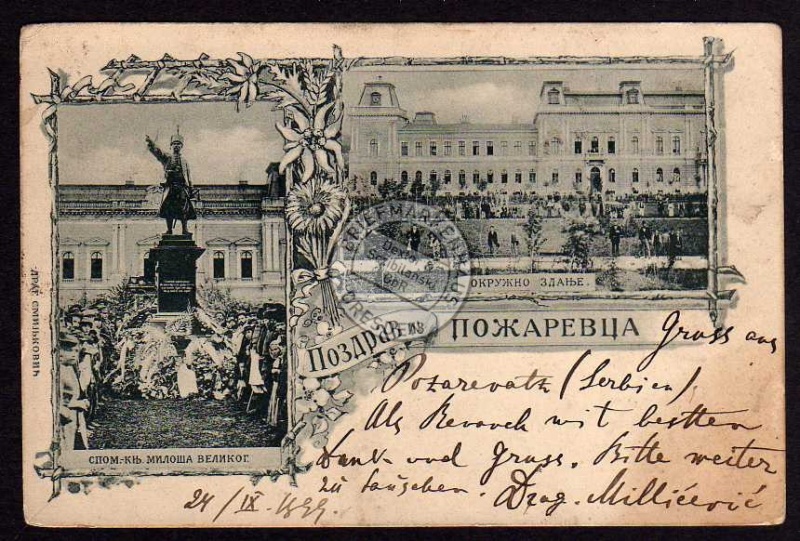 ОКРУЖНО ЗДАЊЕ.
Поздрав из ПОЖАРЕВЦА
СПОМ.-КЊ. МИЛОША ВЕЛИКОГ.
Gruss aus
Pozarevatz (Serbien)
Als Revanch mit bestten
Dank und Gruss. Bitte weiter
zu tauschen. Drag. Millićević
24/IX 1899
ДРАГ.
BRIEFMARKEN